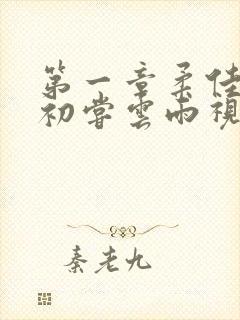 第一章柔佳
初尝雲雨視
秦老九